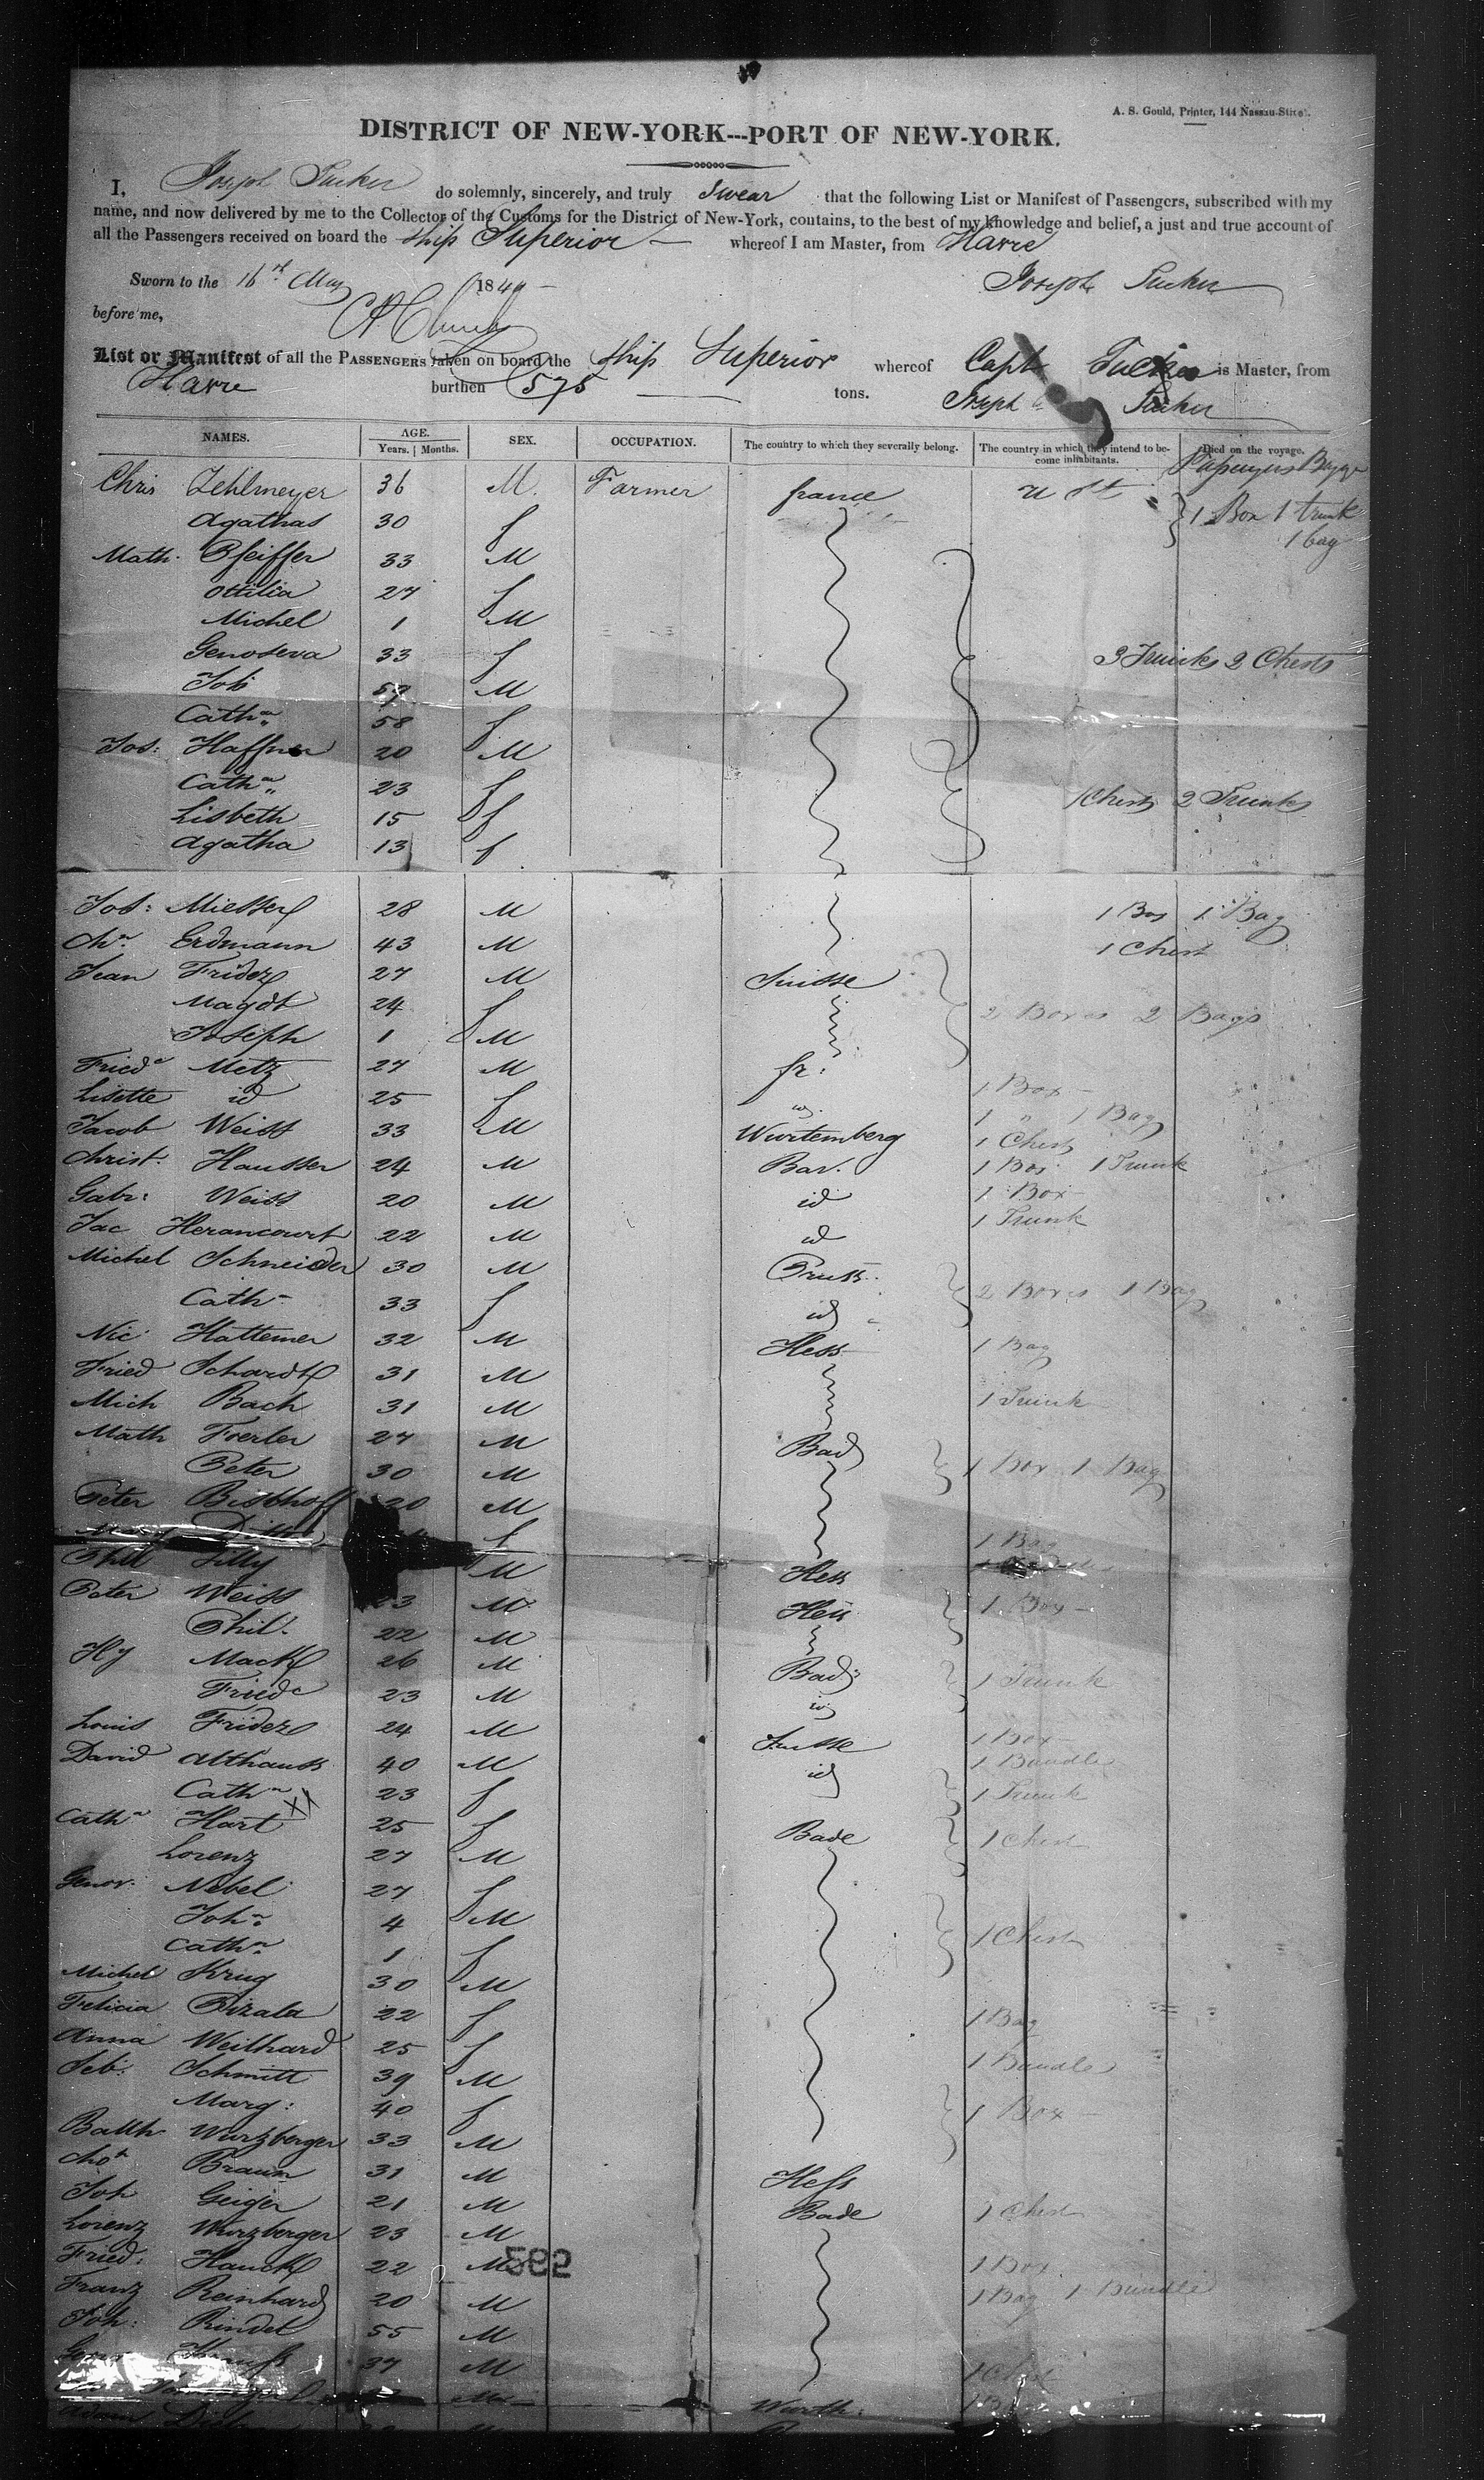 A. S. Gould, Printer, 144 Nassau-Street.
DISTRICT OF NEW-YORK---PORT OF NEW-YORK.
I, Joseph Tucker do solemnly, sincerely, and truly Swear that the following List or Manifest of Passengers, subscribed with my
name, and now delivered by me to the Collector of the Customs for the District of New-York, contains, to the best of my knowledge and belief, a just and true account of
all the Passengers received on board the ship Superior whereof I am Master, from Havre
Sworn to the 16th May 1840
Joseph Tucker
before me,
List or Manifest of all the PASSENGERS taken on board the ship Superior whereof Capt Tucker is Master, from
Havre burthen 575 tons. Joseph Tucker
NAMES. AGE. Years. Months. SEX. OCCUPATION. The country to which they severally belong. The country in which they intend to become inhabitants. Died on the voyage.
Passengers Bagge
Chris Zehlmeyer 36 M. Farmer france U St
Agathas 30 f 1 Box 1 trunk
1 bag
Math. Pfeiffer 33 M
Ottilia 27 f
Michel 1 M
Genoseva 33 f 3 Trunks 2 Chests
Joh M
Cathn 58 f
Jos: Haffner 20 M
Cathn 23 f
Lisbeth 15 f 1 Chest 2 Trunks
Agatha 13 f
Jos: 28 M 1 Box 1 Bag
Chn Erdmann 43 M 1 Chest
Jean Fridez 27 M Suisse
Magdt 24 f 2 Boxes 2 Bags
Joseph 1 M
Friedc Metz 27 M fr.
Lisette id 25 f id 1 Box
Jacob Weiss 33 M Wurtemberg 1 " 1 Bag
1 Chest
Christ. Hausser 24 M Bav. 1 Box 1 Trunk
Gabr: Weiss 20 M id 1 Box
Jac Herancourt 22 M id 1 Trunk
Michel Schneider 30 M Pruss.
Cath 33 f id 2 Boxes 1 Bag
Nic Hattemer 32 M Hess 1 Bag
Fried Schardt 31 M
Mich Bach 31 M 1 Trunk
Math Foerler 27 M Bad
Peter 30 M 1 Box 1 Bag
Peter Bischoff 20 M
f 1 Bag
Phil Lilly M Hess
Peter Weiss 23 M Hess 1 Box
Phil. 22 M
Hy Mack 26 M Bad: 1 Trunk
Friedc 23 M id
Louis Fridez 24 M Suisse 1 Box
David Althauss 40 M id 1 Bundle
Cathn 23 f 1 Trunk
Cathn Hart 25 f Bade 1 Chest
Lorenz 27 M
Genov: Nebel 27 f
John 4 M 1 Chest
Cathn 1 f
Michel Krug 30 M
Felicia Pizala 22 f 1 Bag
Anna Weilhard 25 f 1 Bundle
Seb: Schmitt 39 M
Marg: 40 f 1 Box
Balth Wurzberger 33 M
Braun 31 M Hess
Joh Geiger 21 M Bade 1 Chest
Lorenz Wurzberger 23 M
Fried: Hauck 22 M 1 Box
Franz Reinhard 20 M 1 Bag 1 Bundle
Joh: Rindel 55 M
37 M 1 Chest
M Wurth.
Adam